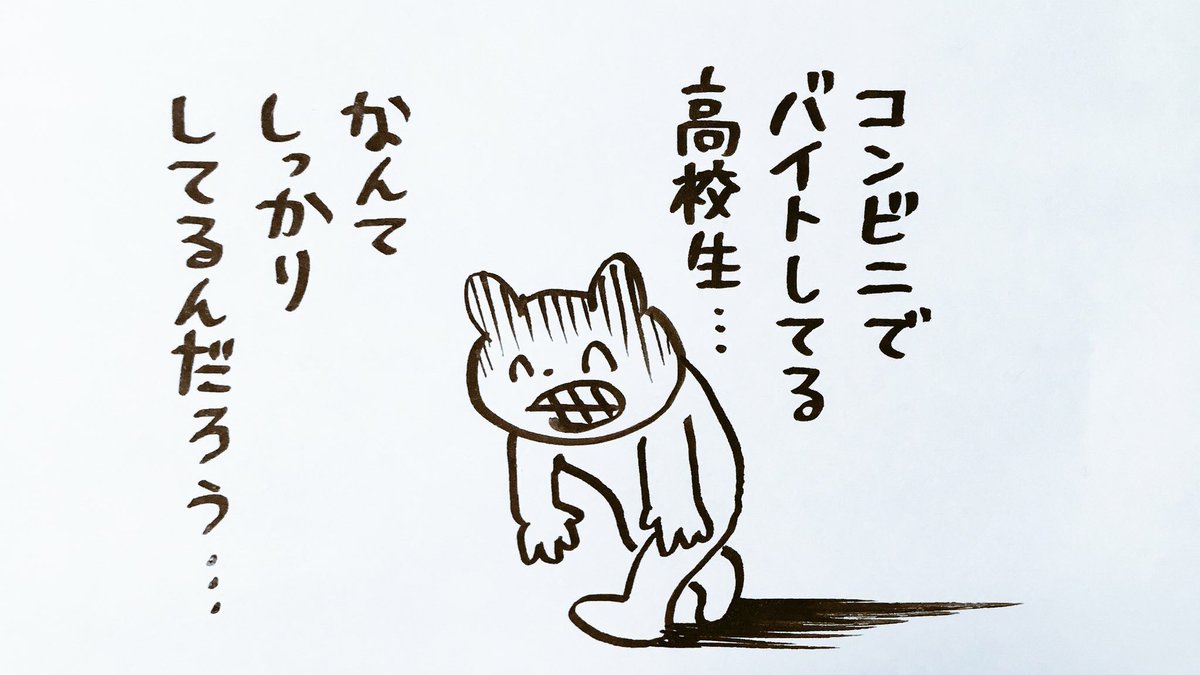 コンビニで
バイトしてる
高校生…
なんて
しっかり
してるんだろう…